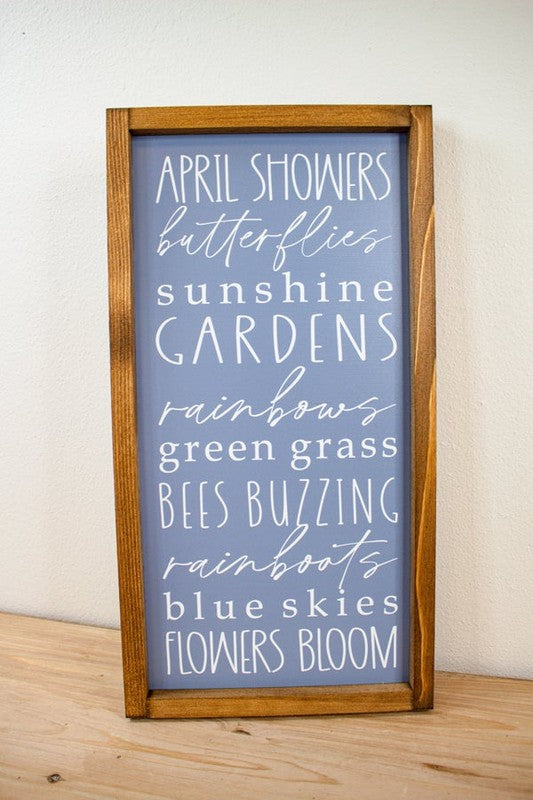 APRIL SHOWERS
butterflies
sunshine
GARDENS
rainbows
green grass
BEES BUZZING
rainboots
blue skies
FLOWERS BLOOM